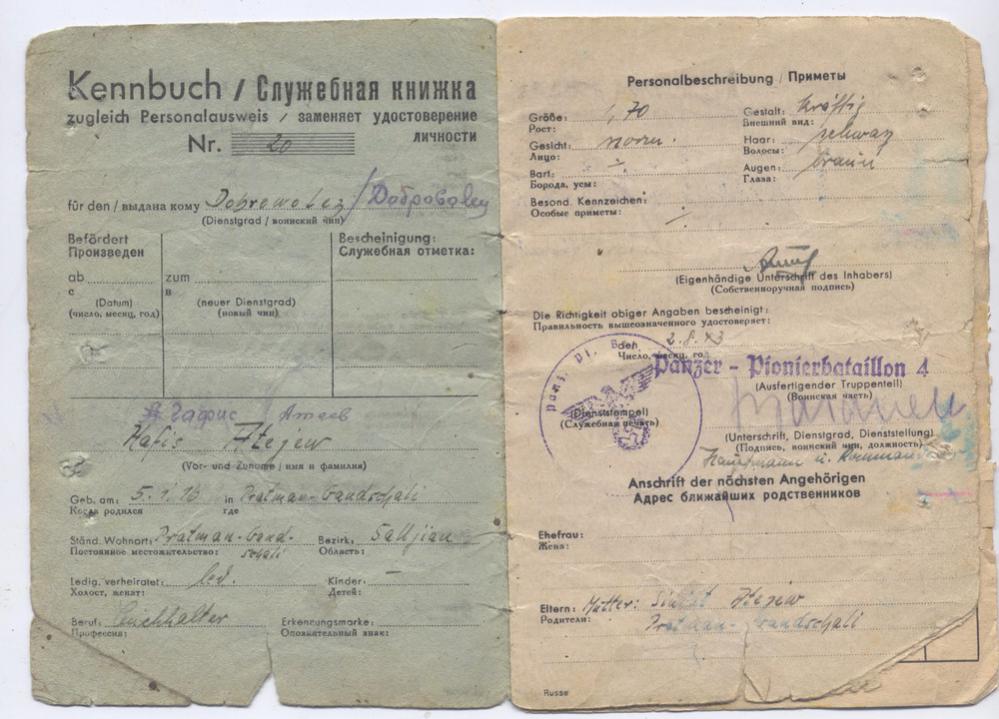 Kennbuch / Служебная книжка
zugleich Personalausweis / заменяет удостоверение
личности
Nr. 20
für den / выдана кому Dobrowolez / Доброволец
(Dienstgrad / воинский чин)
Befördert
Произведен
Bescheinigung:
Служебная отметка:
ab
с
zum
в
(Datum)
(число, месяц, год)
(neuer Dienstgrad)
(новый чин)
Гафис Атеев
Hafis Atejew
(Vor- und Zuname / имя и фамилия)
Geb. am: 5.1.16 in
Когда родился где
Ständ. Wohnort:
Постоянное местожительство:
Bezirk:
Область:
Ledig, verheiratet: led.
Холост, женат:
Kinder: –
Детей:
Beruf: Buchhalter
Профессия:
Erkennungsmarke:
Опознавательный знак:
Personalbeschreibung / Приметы
Größe: 1,70
Рост:
Gestalt: kräftig
Внешний вид:
Gesicht: norm.
Лицо:
Haar: schwarz
Волосы:
Bart:
Борода, усы:
Augen: braun
Глаза:
Besond. Kennzeichen:
Особые приметы:
(Eigenhändige Unterschrift des Inhabers)
(Собственноручная подпись)
Die Richtigkeit obiger Angaben bescheinigt:
Правильность вышеозначенного удостоверяет:
den, 2.8.43
Число, месяц, год
Panzer - Pionierbataillon 4
(Ausfertigender Truppenteil)
(Воинская часть)
(Dienststempel)
(Служебная печать)
(Unterschrift, Dienstgrad, Dienststellung)
(Подпись, воинский чин, должность)
Hauptmann u.
Anschrift der nächsten Angehörigen
Адрес ближайших родственников
Ehefrau:
Жена:
Eltern: Mutter: Atejew
Родители:
Russe